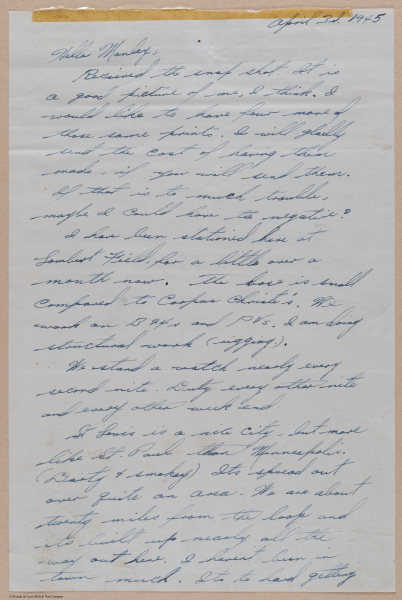 April 3d, 1945
Hello Manley,
Received the snap shot. It is
a good picture of me, I think. I
would like to have four more of
those same points. I will gladly
send the cost of having them
made - if you will send them.
If that is to much trouble,
maybe I could have the negative?
I have been stationed here at
Lambert Field, for a little over a
month now. The base is small
compared to Corpus Christi's. We
work on B 24s and PVs. I am doing
structural work (rigging).
We stand a watch nearly every
second nite. Duty every other nite
and every other week end
St Louis is a nice city, but more
like St. Paul than Minneapolis.
(Dirty & smokey) Its spread out
over quite an area. We are about
twenty miles from the loop and
it's built up nearly all the
way out here. I haven't been in
town much. Its to hard getting